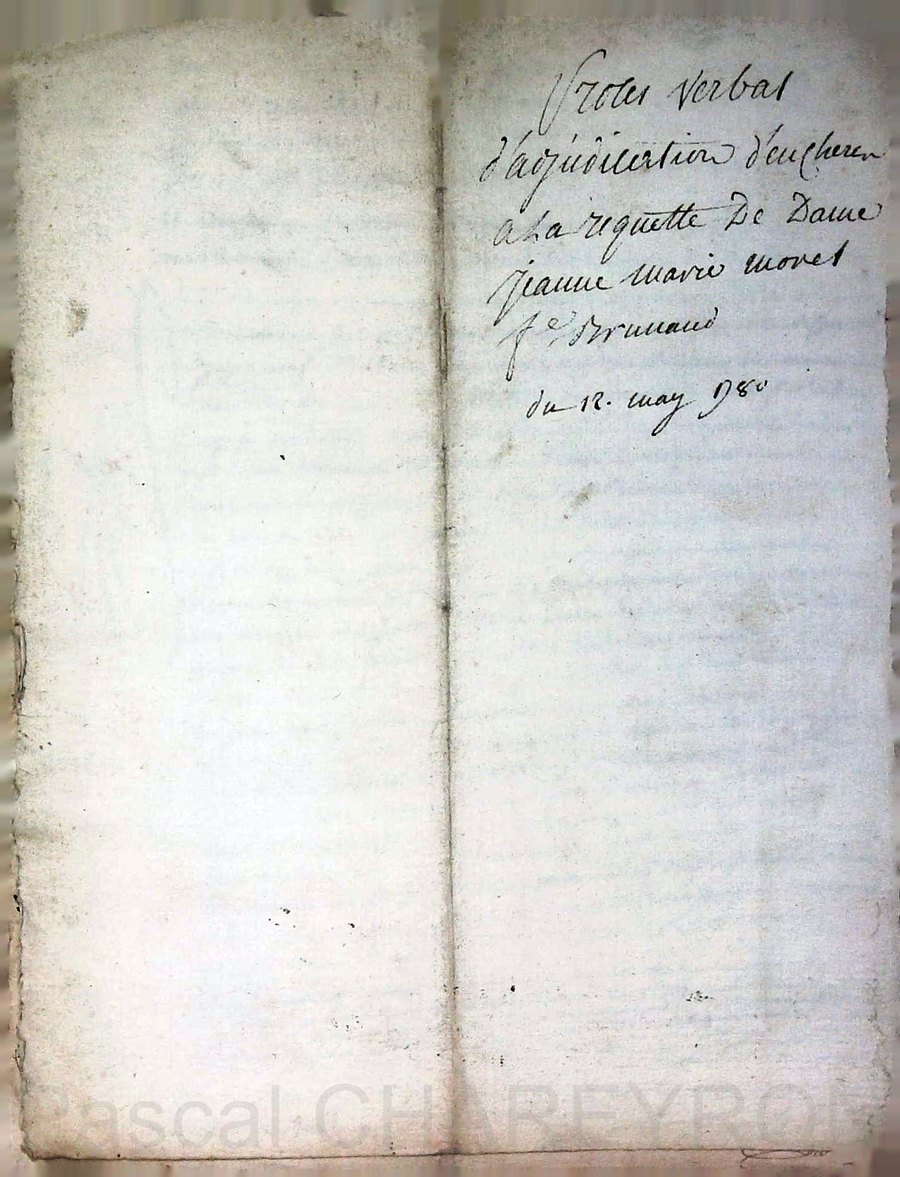 Proces verbal
d'adjudication d'encheres
a La requette De Dame
jeanne marie morel
f.e Brunaud
du 12. may 1780
Pascal CHAREYRON